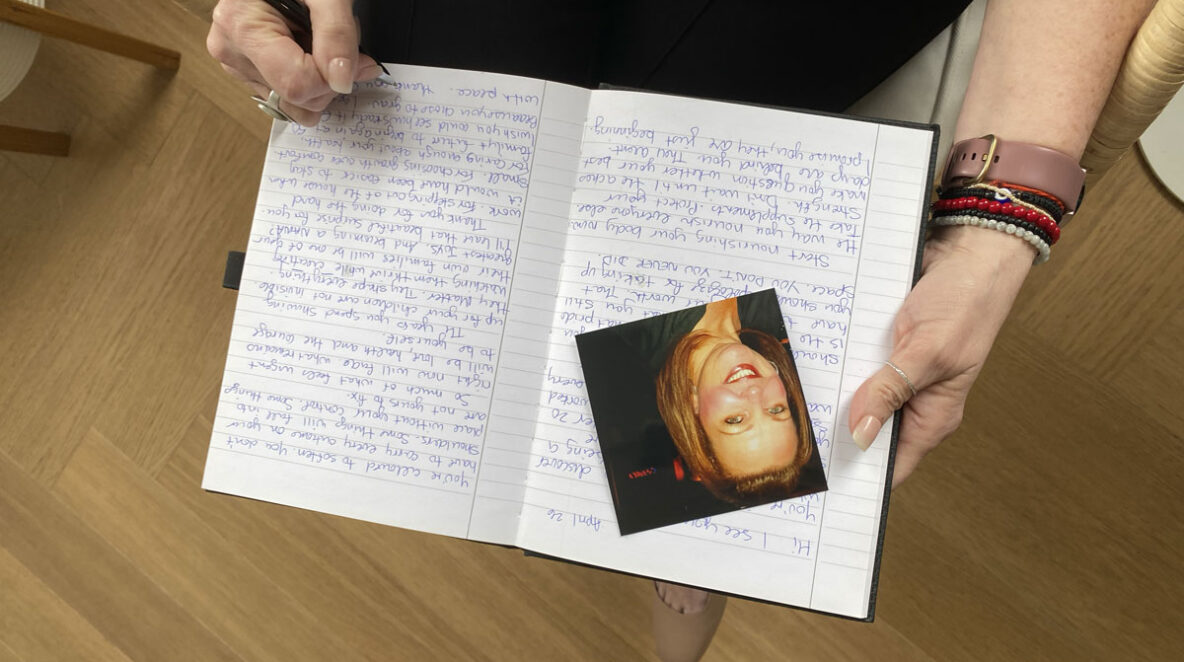 April 26
Hi I see you
you're
discover
being a
20
worked
every
you
should pride
is the you still
have to worth. That
you should apologize for taking up
space. You DON'T. YOU NEVER DID.
Start nourishing your body now.
the way you nourish everyone else
Take the supplements. Protect your
Strength. Don't wait until the aches
make you question whether your best
days are behind you. They arent.
I promise you, they are just beginning.
You're allowed to soften. You don't
have to carry every outcome on your
shoulders. Some things will fall into
place without your control. Some things
are not yours to fix.
So much of what feels urgent
right now will fade. What remains
will be love, health and the courage
to be yourself.
The years you spend showing
up for your children are not invisible
They Matter. They shape everything.
Watching them thrive while creating
their own families will be one of your
greatest Joys. And becoming a NANA?
I'll leave that beautiful surprise for you.
Thank you for doing the hard
work for stepping out of the house when
it would have been easier to stay
small. For choosing growth over comfort
For caring enough about your health,
family & future to begin again at
I wish you could see how
Because you chose to
With peace.